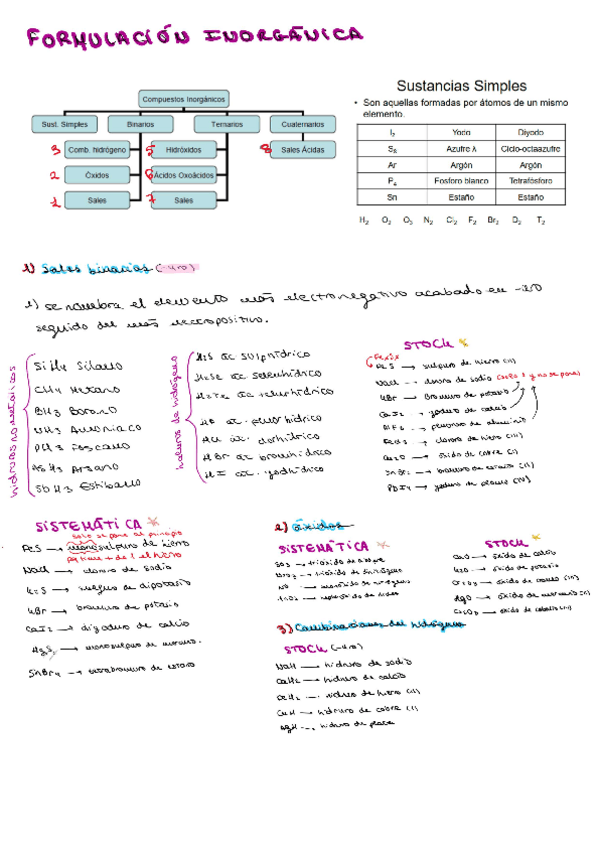 FORMULACIÓN INORGÁNICA
Compuestos Inorgánicos
Sust. Simples
Binarios
Ternarios
Cuaternarios
3 Comb. hidrógeno
5 Hidróxidos
8 Sales Ácidas
2 Óxidos
6 Ácidos Oxoácidos
1 Sales
7 Sales
Sustancias Simples
• Son aquellas formadas por átomos de un mismo
elemento.
I2 Yodo Diyodo
S8 Azufre λ Ciclo-octaazufre
Ar Argón Argón
P4 Fosforo blanco Tetrafósforo
Sn Estaño Estaño
H2 O2 O3 N2 Cl2 F2 Br2 D2 T2
1) Sales binarias (-uro)
se nombra el elemento más electronegativo acabado en -uro
seguido del más electropositivo.
hidruros no metálicos
SiH4 Silano
CH4 Metano
BH3 Borano
NH3 Amoniaco
PH3 Foscano
AsH3 Arsano
SbH3 Estibano
H2S ác sulfhídrico
H2Se ác selenhídrico
H2Te ác telurhídrico
HF ác. fluorhídrico
HCl ác. clorhídrico
HBr ác bromhídrico
HI ác. yodhídrico
STOCK
FeS → sulfuro de hierro (II)
NaCl → cloruro de sodio
KBr → Bromuro de potasio
CaI2 → yoduro de calcio
AlF3 → fluoruro de aluminio
→ cloruro de hierro (III)
→ óxido de cobre
→ bromuro de estaño
PbI4 → yoduro de plomo (IV)
SISTEMÁTICA
solo se pone al principio
FeS → monosulfuro de hierro
NaCl → cloruro de sodio
K2S → sulfuro de dipotasio
KBr → bromuro de potasio
CaI2 → diyoduro de calcio
→ monosulfuro de
SnBr4 → tetrabromuro de estano
2) Óxidos
SISTEMÁTICA
SO3 → trióxido de azufre
→ trióxido de dinitrógeno
NO → monóxido de nitrógeno
STOCK
CaO → óxido de calcio
K2O → óxido de potasio
→ óxido de
HgO → óxido de mercurio (II)
→ óxido de cobalto (III)
3) Combinaciones del hidrógeno
STOCK (-uro)
NaH → hidruro de sodio
CaH2 → hidruro de calcio
FeH2 → hidruro de hierro (II)
CuH → hidruro de cobre (I)
AgH → hidruro de plata